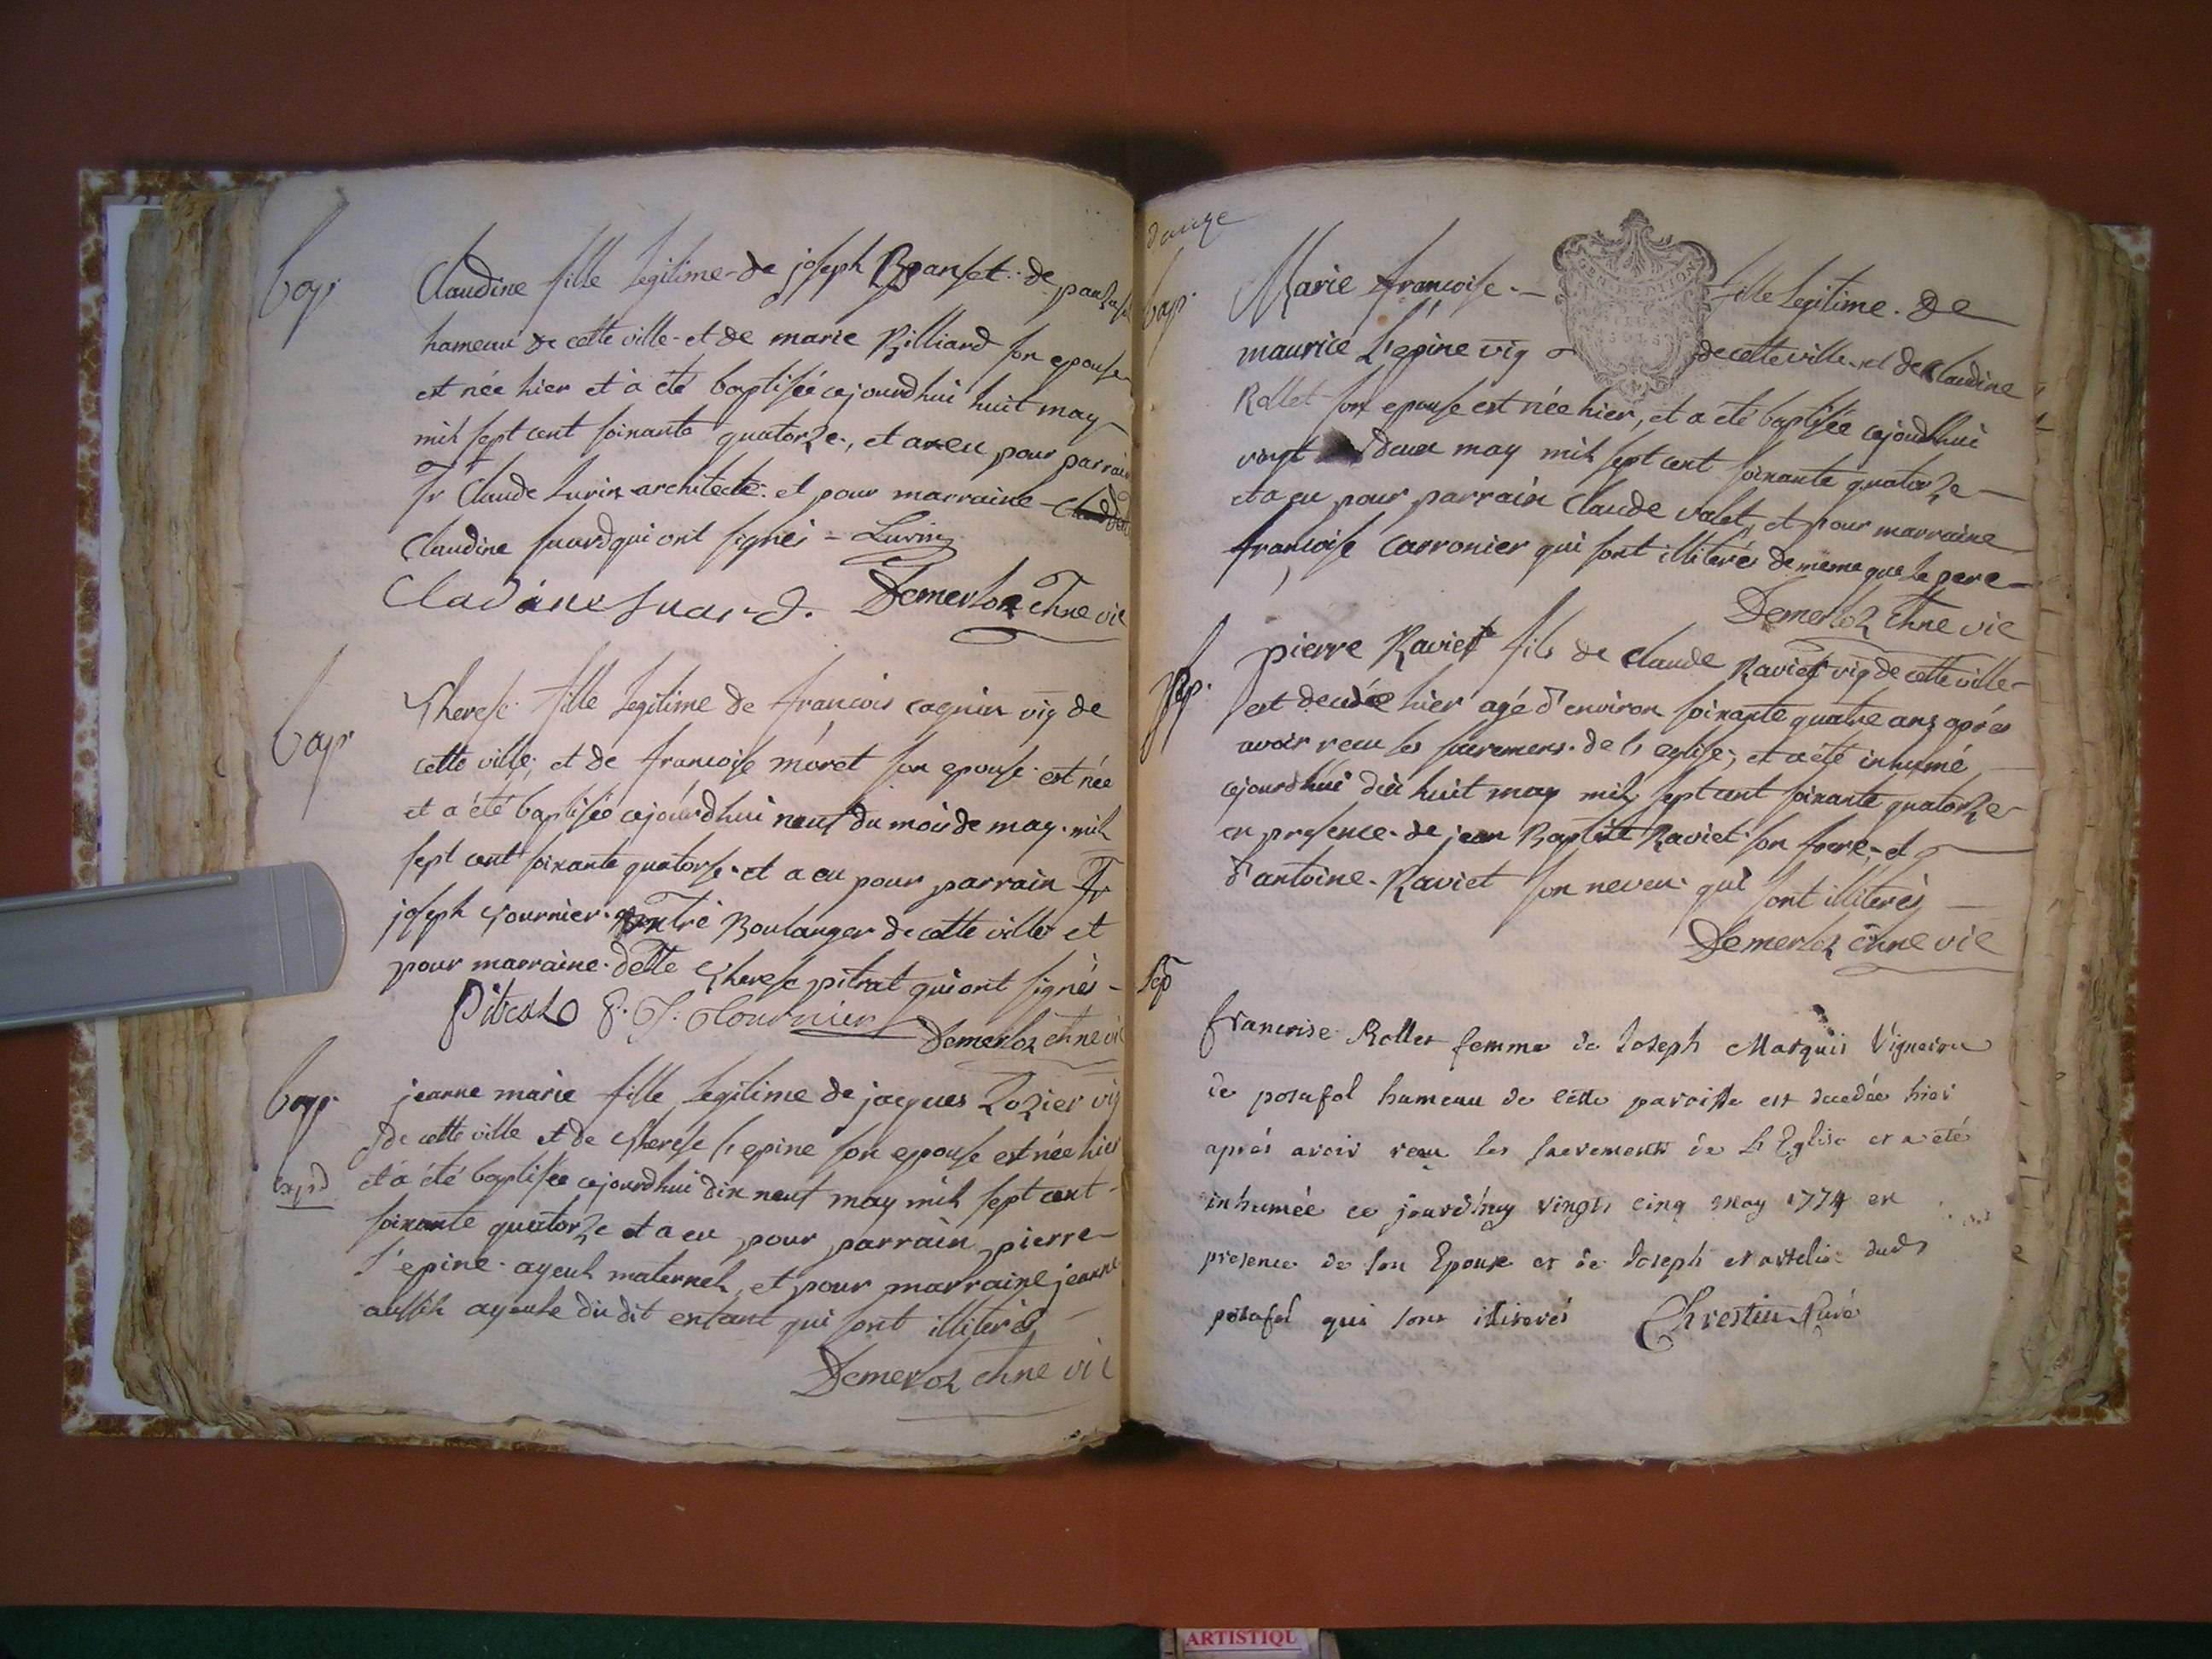 bap.
Claudine fille legitime de joseph Branset de
hameau de cette ville et de marie Rilliard son epouse
est née hier et à été baptisée cejourdhui huit may
mil sept cent soixante quatorze, et a eu pour parrain
Sr Claude Lurin architecte et pour marraine
Claudine suard qui ont signés = Lurin
Cladine suard. Demerloz ehne vic
bap
Therese fille legitime de francois cagnin vig de
cette ville, et de francoise moret son epouse est née
et a été baptisée cejourdhui neuf du mois de may mil
sept cent soixante quatorse et a eu pour parrain Sr
joseph tournier Boulanger de cette ville et
pour marraine delle therese pitrat qui ont signés -
Pitrat tournier Demerloz ehne vic
bap
jeanne marie fille legitime de jacques Lozier vig
de cette ville et de therese l'epine son epouse est née hier
expd
et à été baptisée cejourdhui dix neuf may mil sept cent
soixante quatorze et a eu pour parrain pierre
l'epine ayeul maternel, et pour marraine jeanne
ayeule du dit enfant qui sont illiterés
Demerloz ehne vic
douze
bap.
Marie francoise fille legitime de
maurice L'epine vig de cette ville et de Claudine
Rollet son epouse est née hier, et a été baptisée cejourdhui
vingt deux may mil sept cent soixante quatorze
et a eu pour parrain Claude valet, et pour marraine
francoise Carronier qui sont illiterés de même que le pere
Demerloz ehne vic
sep.
pierre Raviet fils de claude Raviet vig de cette ville
est decedée hier agé d'environ soixante quatre ans après
avoir recu les sacremens de l'eglise, et a été inhumé
cejourdhui dix huit may mil sept cent soixante quatorze
en presence de jean Baptiste Raviet son frere, et
d'antoine Raviet son neveu qui sont illiterés
Demerloz ehne vic
sep
francoise Rollet femme de Joseph Marquis Vigneron
de posafol hameau de cette paroisse est decedée hier
après avoir recu les sacrements de L'Eglise et a été
inhumée ce jourdhuy vingt cinq may 1774 en
presence de son Epoux et de Joseph dud
posafol qui sont illiterés Chrestin Curé
ARTISTIQU